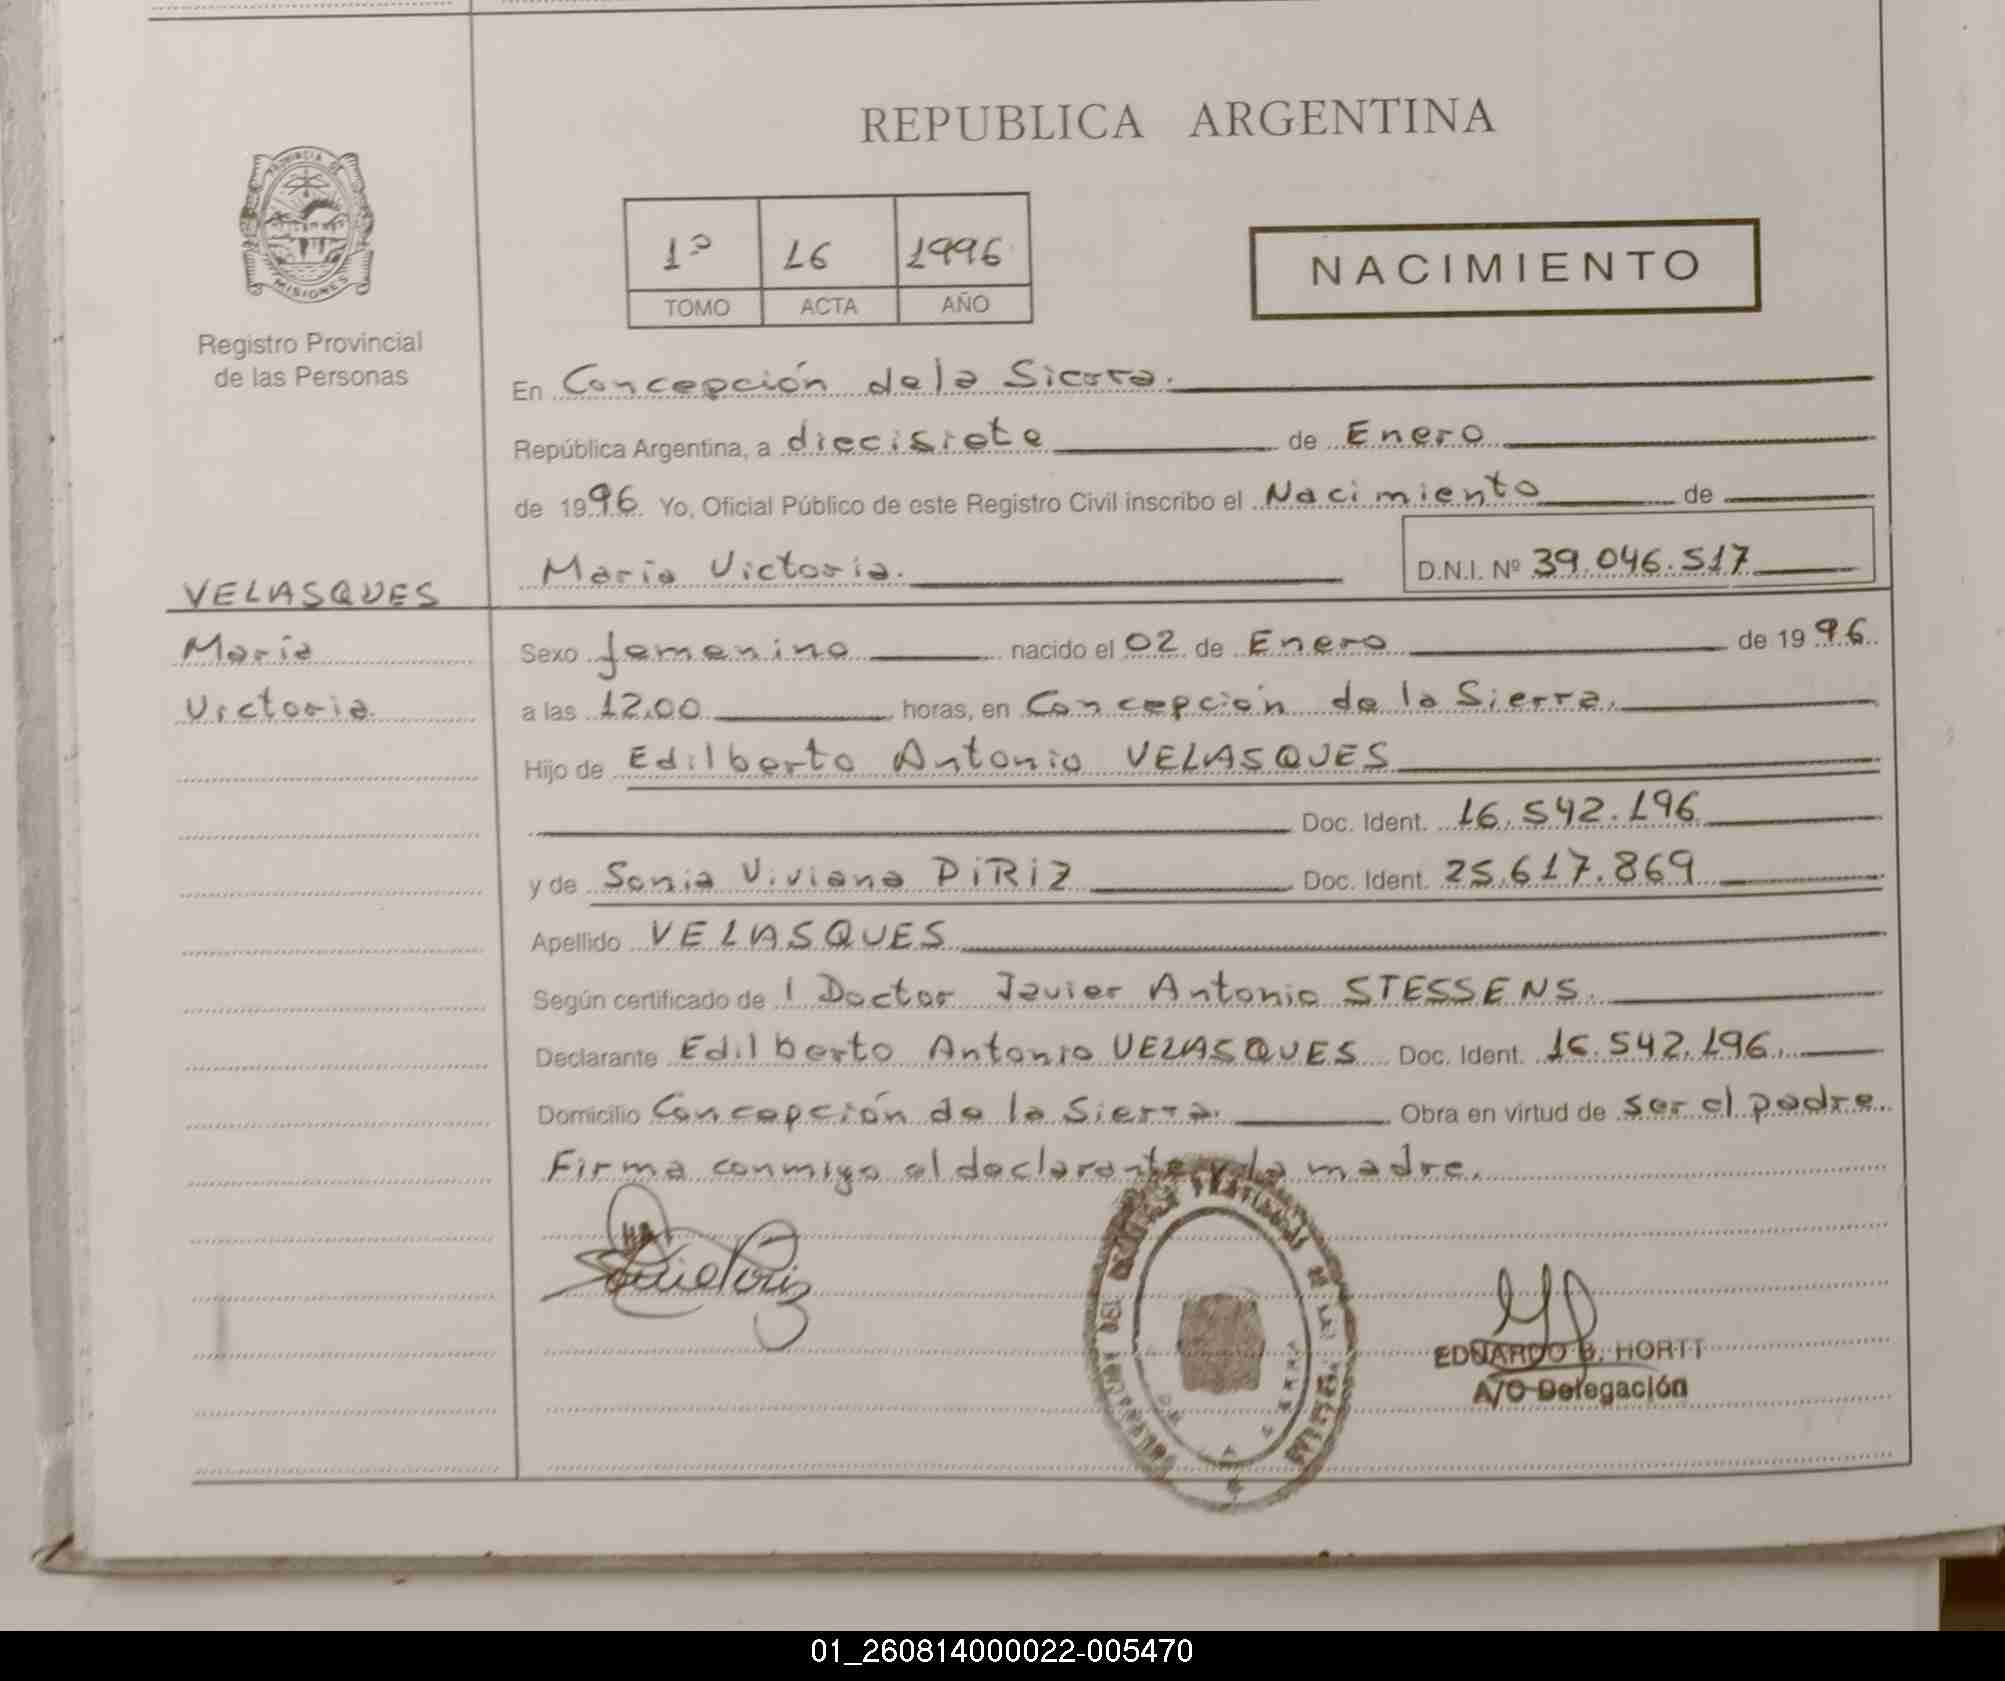 REPUBLICA ARGENTINA
PROVINCIA DE
MISIONES
Registro Provincial
de las Personas
1º 16 1996
TOMO ACTA AÑO
NACIMIENTO
En Concepción de la Sierra.
República Argentina, a diecisiete de Enero
de 1996 Yo, Oficial Público de este Registro Civil inscribo el Nacimiento de
María Victoria. D.N.I. Nº 39.046.517
VELASQUES
María
Victoria
Sexo femenino nacido el 02 de Enero de 1996
a las 12,00 horas, en Concepción de la Sierra.
Hijo de Edilberto Antonio VELASQUES
Doc. Ident. 16.542.196
y de Sonia Viviana PiRiZ Doc. Ident. 25.617.869
Apellido VELASQUES
Según certificado de l Doctor Javier Antonio STESSENS.
Declarante Edilberto Antonio VELASQUES Doc. Ident. 16.542.196.
Domicilio Concepción de la Sierra. Obra en virtud de ser el padre.
Firma conmigo el declarante y la madre.
EDUARDO B. HORTT
A/C Delegación
01_260814000022-005470